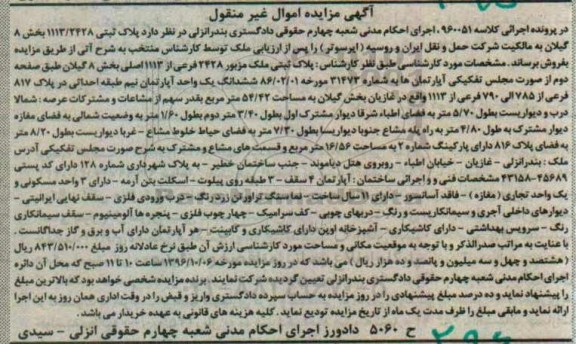 آگهی مزایده اموال غیر منقول
در پرونده اجرائی کلاسه ۹۶۰۰۵۱ اجرای احکام مدنی شعبه چهارم حقوقی دادگستری بندرانزلی در نظر دارد پلاک ثبتی ۱۱۱۳/۲۴۲۸ بخش ۸
گیلان به مالکیت شرکت حمل و نقل ایران و روسیه (ایرسوتر) را پس از ارزیابی ملک توسط کارشناس منتخب به شرح آتی از طریق مزایده
بفروش برساند. مشخصات مورد کارشناسی طبق نظر کارشناس: پلاک ثبتی ملک مزبور ۲۴۲۸ فرعی از ۱۱۱۳ اصلی بخش ۸ گیلان طبق صفحه
دوم از صورت مجلس تفکیکی آپارتمان ها به شماره ۳۱۴۷۳ مورخه ۸۶/۰۲/۰۱ ششدانگ یک واحد آپارتمان نیم طبقه احداثی در پلاک ۸۱۷
فرعی از ۷۸۵ الی ۷۹۰ فرعی از ۱۱۱۳ واقع در غازیان بخش گیلان به مساحت ۵۴/۴۲ متر مربع بقدر سهم از مشاعات و مشترکات عرصه: شمالا
درب و دیواریست بطول ۵/۷۰ متر به فضای اطباء شرقا دیوار مشترک اول بطول ۳/۴۰ متر دوم بطول ۱/۶۰ متر به وضعیت شمالی به فضای مغازه
دیوار مشترک به طول ۴/۸۰ متر به راه پله مشاع جنوبا دیواریسا بطول ۷/۳۰ متر به فضای حیاط خلوط مشاع - غربا دیواریست بطول ۸/۲۰ متر
به فضای پلاک ۸۱۶ دارای پارکینگ شماره ۲ به مساحت ۱۶/۵۶ متر مربع و قسمت های مشاع و مشترک به شرح صورت مجلس تفکیکی آدرس
ملک: بندرانزلی - غازیان - خیابان اطباء - روبروی هتل دیاموند - جنب ساختمان خطیر - به پلاک شهرداری شماره ۱۲۸ دارای کد پستی
۴۳۱۵۸-۴۵۶۸۹ مشخصات فنی و اجرائی ساختمان: آپارتمان ۴ سقف - ۳ طبقه روی پیلوت - اسکلت بتن آرمه - دارای ۳ واحد مسکونی و
یک واحد تجاری (مغازه) - فاقد آسانسور - دارای ۱۱ سال ساخت - نماسنگ تراورتن زرد رنگ - درب ورودی فلزی - سقف نهایی ایرانیتی -
دیوارهای داخلی آجری و سیمانکاریست و رنگ - دربهای چوبی - کف سرامیک - چهار چوب فلزی - پنجره ها آلومینیوم - سقف سیمانکاری
رنگ - سرویس بهداشتی - دارای کاشیکاری - آشپزخانه اوپن دارای کاشیکاری و کابینت - هر آپارتمان دارای آب و برق و گاز جداگانست.
با عنایت به مراتب صدرالذکر و با توجه به موقعیت مکانی و مساحت مورد کارشناسی ارزش آن طبق نرخ عادلانه روز مبلغ ۸۴۳/۵۱۰/۰۰۰ ریال
(هشتصد و چهل و سه میلیون و پانصد و ده هزار ریال) می باشد که در روز مزایده مورخه ۱۳۹۶/۱۰/۰۶ ساعت ۱۰ تا ۱۱ صبح که محل آن دائره
اجرای احکام مدنی شعبه چهارم حقوقی دادگستری بندرانزلی تعیین گردیده شرکت نمایند. برنده مزایده شخصی خواهد بود که بالاترین مبلغ
را پیشنهاد نماید و ده درصد مبلغ پیشنهادی را در روز مزایده به حساب سپرده دادگستری واریز و قبض را در وقت اداری همان روز به این اجرا
ارائه نماید و مابقی مبلغ را ظرف مدت یک ماه از تاریخ مزایده تودیع نماید. کلیه هزینه های قانونی به عهده خریدار می باشد.
ح ۵۰۶۰ دادورز اجرای احکام مدنی شعبه چهارم حقوقی انزلی - سیدی